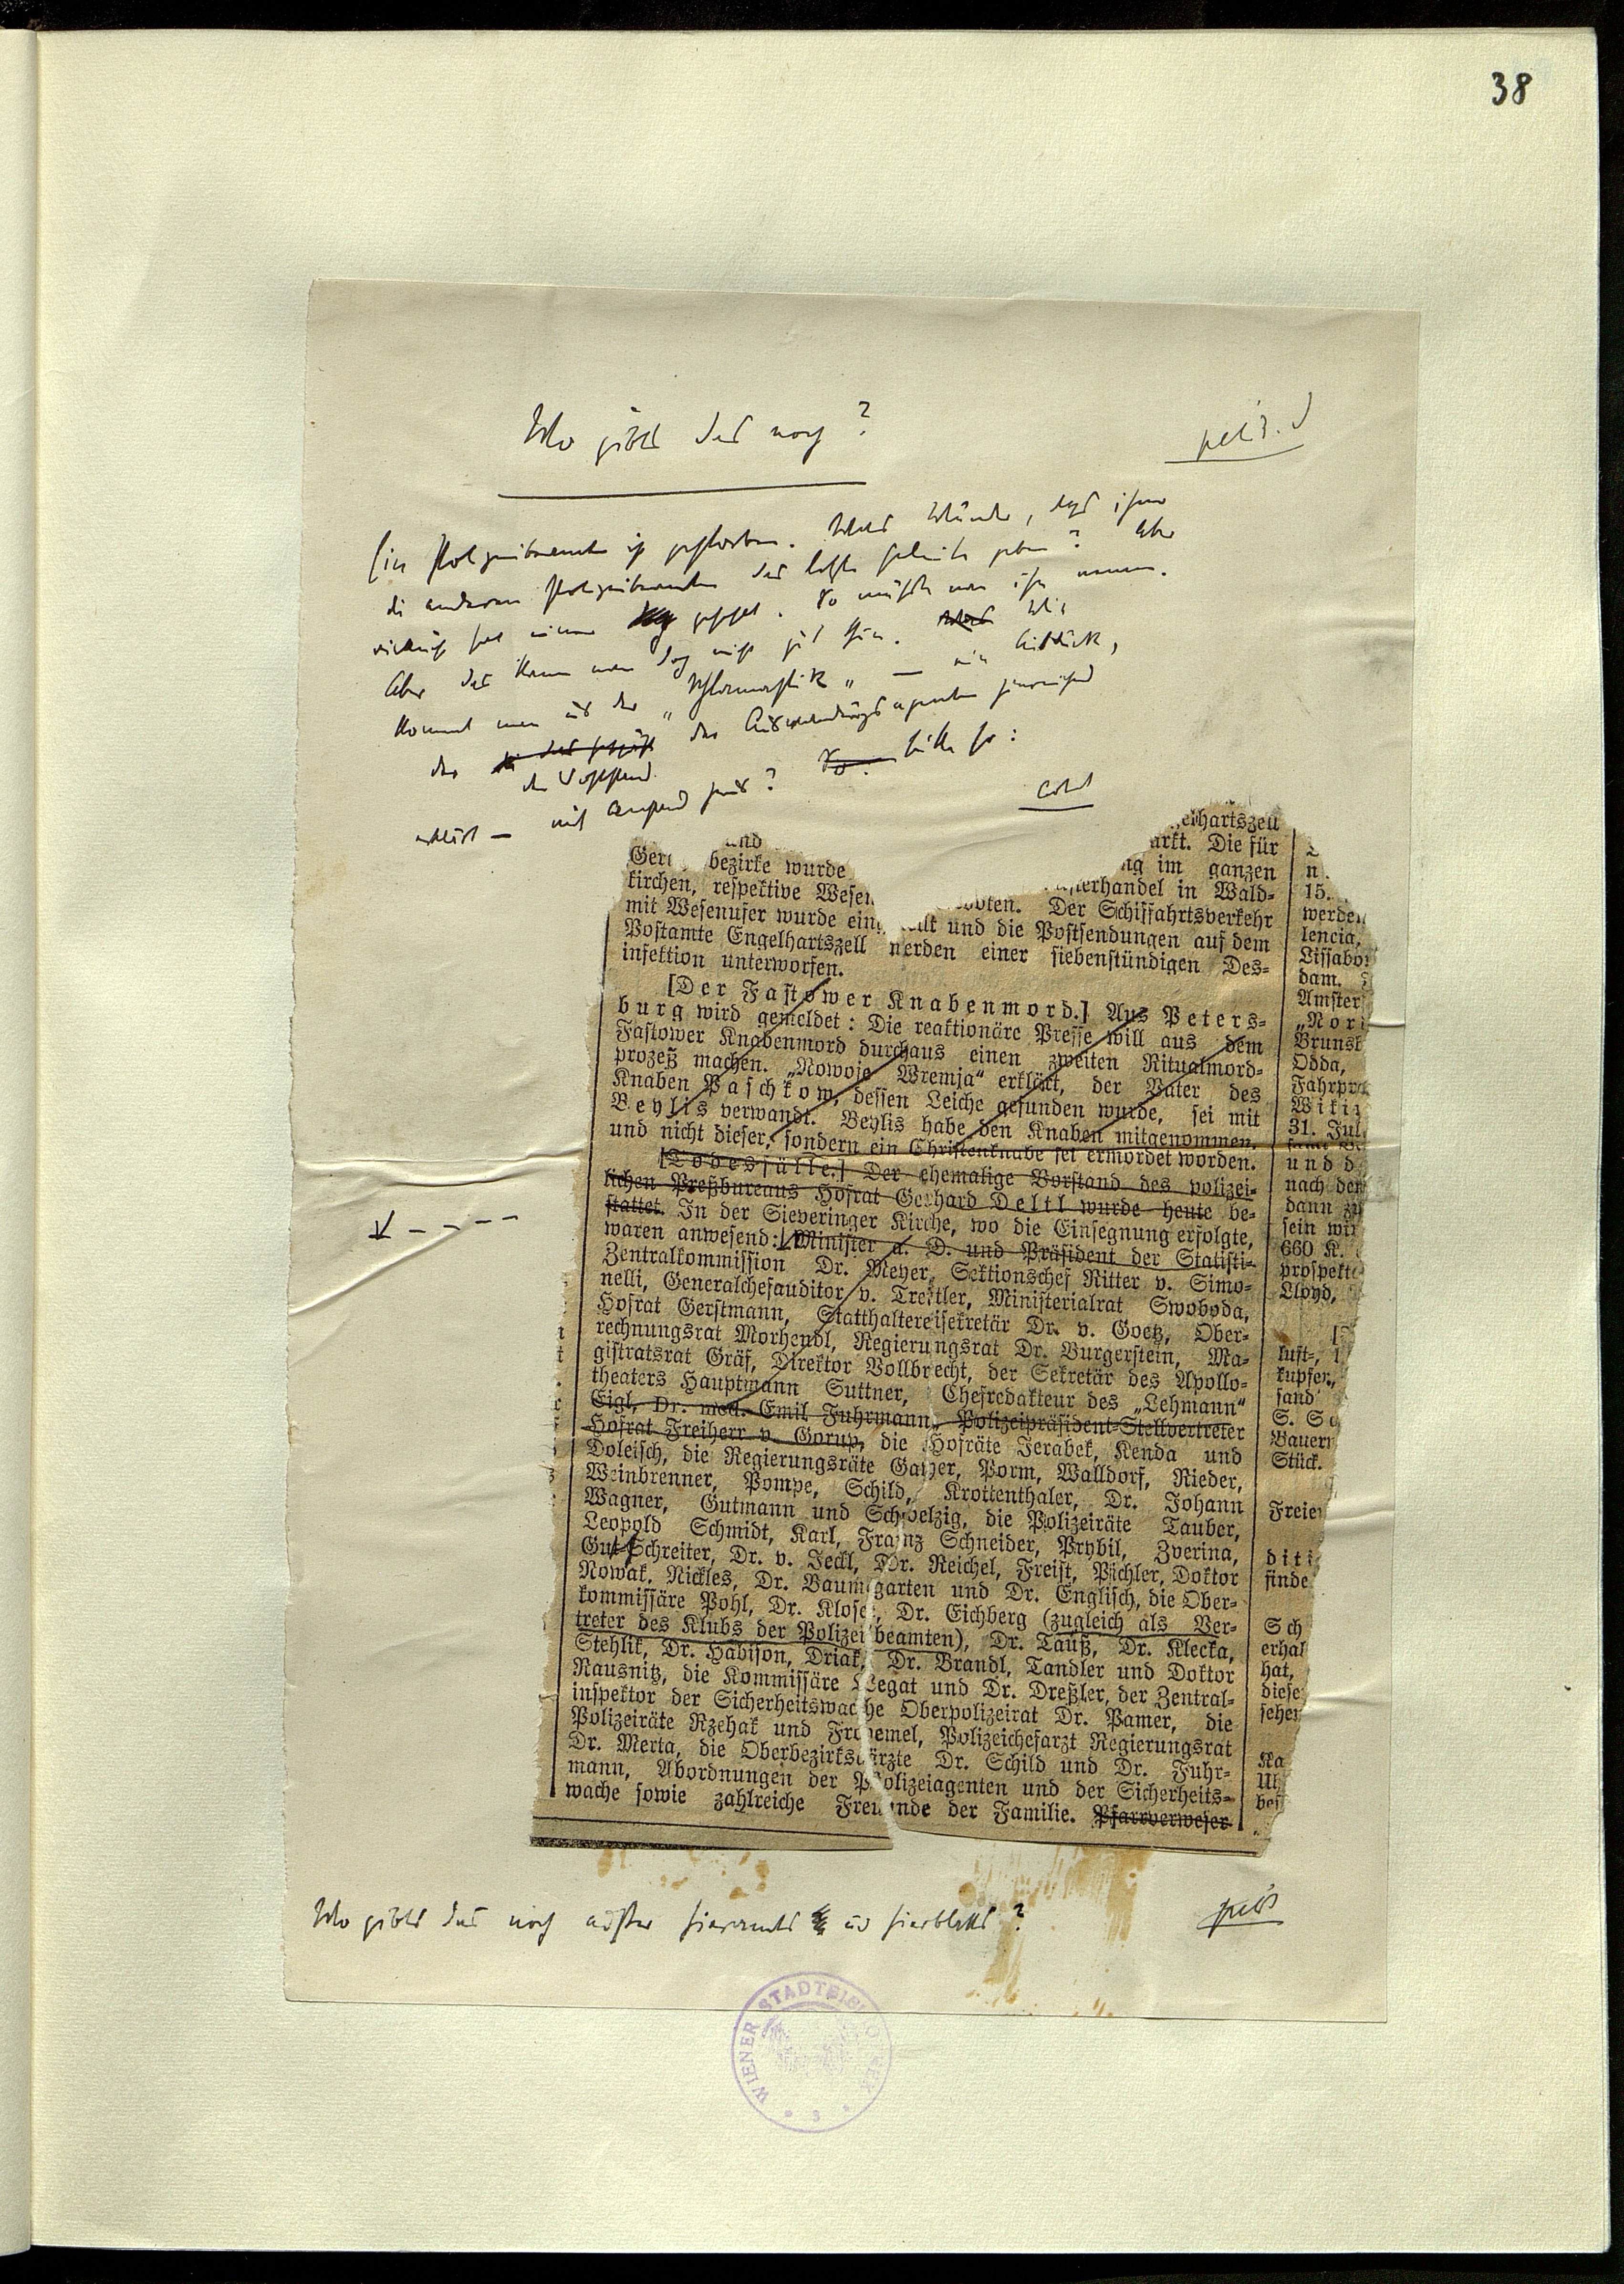 38
Wo gibts das noch?
petit
Ein Polizeibeamter ist gestorben. Was Wunder, dass ihm
die anderen Polizeibeamten das letzte Geleite geben? Aber
vielleicht hat einer gefehlt. So müsste man ihn nennen.
Aber das kann man doch nicht gut thun. Wie
kommt man aus der „Schlamastik“ — ein Ausdruck,
der den
mit anständ
erklärt —
Bitte so:
elhartszell
und
arkt. Die für
Ger bezirke wurde
ng im ganzen
kirchen, respektive Wesen
sterhandel in Wald-
mit Wesenufer wurde eing ellt und die Postsendungen auf dem
boten. Der Schiffahrtsverkehr
Postamte Engelhartszell werden einer siebenstündigen Des-
infektion unterworfen.
[Der Fastower Knabenmord.] Aus Peters-
burg wird gemeldet: Die reaktionäre Presse will aus dem
Fastower Knabenmord durchaus einen zweiten Ritualmord-
prozeß machen. „Nowoje Wremja“ erklärt, der Vater des
Knaben Paschkow, dessen Leiche gefunden wurde, sei mit
Beylis verwandt. Beylis habe den Knaben mitgenommen.
und nicht dieser, sondern ein Christenknabe sei ermordet worden.
[Todesfälle.] Der ehemalige Vorstand des polizei-
lichen Preßbureaus Hofrat Gerhard Deltl wurde heute be-
stattet. In der Sieveringer Kirche, wo die Einsegnung erfolgte,
waren anwesend: Minister a. D. und Präsident der Statisti-
Zentralkommission Dr. Meyer, Sektionschef Ritter v. Simo-
nelli, Generalchefauditor v. Treitler, Ministerialrat Swoboda,
Hofrat Gerstmann, Statthaltereisekretär Dr. v. Goetz, Ober-
rechnungsrat Morhendl, Regierungsrat Dr. Burgerstein, Ma-
gistratsrat Gräf, Direktor Vollbrecht, der Sekretär des Apollo-
theaters Hauptmann Suttner, Chefredakteur des „Lehmann“
Eigl, Dr. med. Emil Fuhrmann, Polizeipräsident-Stellvertreter
Hofrat Freiherr v. Gorup, die Hofräte Jerabek, Kenda und
Doleisch, die Regierungsräte Gayer, Porm, Walldorf, Rieder,
Weinbrenner, Pompe, Schild, Krottenthaler, Dr. Johann
Wagner, Gutmann und Schoelzig, die Polizeiräte Tauber,
Leopold Schmidt, Karl, Franz Schneider, Prybil, Zverina,
Gut Schreiter, Dr. v. Jeckl, Dr. Reichel, Freist, Pichler, Doktor
Nowak, Nickles, Dr. Baumgarten und Dr. Englisch, die Ober-
kommissäre Pohl, Dr. Klose, Dr. Eichberg (zugleich als Ver-
treter des Klubs der Polizeibeamten), Dr. Tauß, Dr. Klecka,
Stehlik, Dr. Habison, Driak, Dr. Brandl, Tandler und Doktor
Nausnitz, die Kommissäre Legat und Dr. Dreßler, der Zentral-
inspektor der Sicherheitswache Oberpolizeirat Dr. Pamer, die
Polizeiräte Rzehak und Froemel, Polizeichefarzt Regierungsrat
Dr. Merta, die Oberbezirksärzte Dr. Schild und Dr. Fuhr-
mann, Abordnungen der Polizeiagenten und der Sicherheits-
wache sowie zahlreiche Freunde der Familie. Pfarrverweser
15.
werden
lencia,
Lissabon
dam.
Amster
„Nori
Brunsb
Odda,
Fahrpr
Wikin
31. Jul
und d
nach dem
dann zu
sein wir
660 K.
prospekte
Lloyd,
luft-,
kupfer,
sand
S. Sa
Bauern
Stück.
Freier
diti
finde
Sch
erhal
hat,
diese
sehen
Ka
bes
Wo gibts das noch ausser hieramts und hierblatts?
petit
WIENER STADTBIBLIOTHEK
3